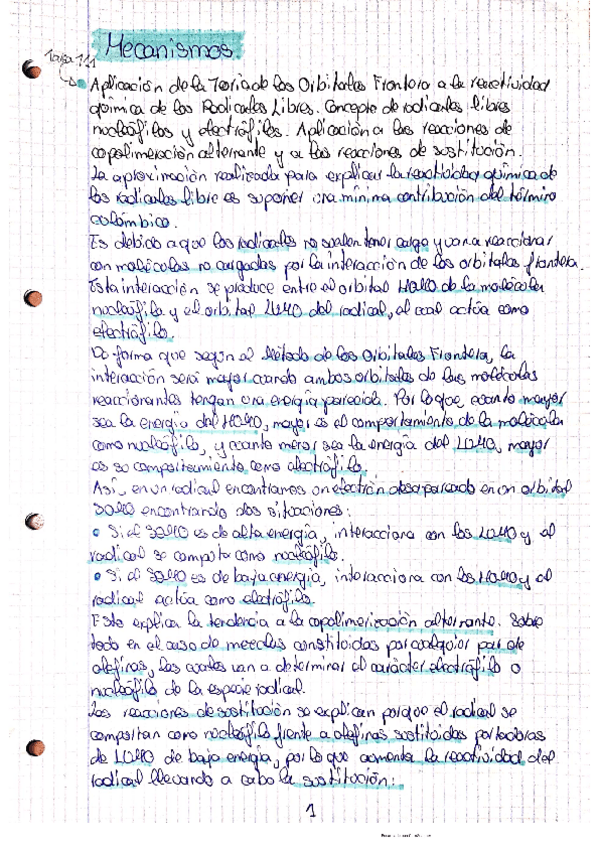 Mecanismos.
Tanja 111
Aplicación de la Teoría de los Orbitales Frontera a la reactividad
química de los Radicales Libres. Concepto de radicales libres
nucleófilos y electrófilos. Aplicación a las reacciones de
copolimeración alternante y a las reacciones de sustitución.
La aproximación realizada para explicar la reactividad química de
los radicales libre es suponer una mínima contribución del término
culómbico.
Es debido a que los radicales no suelen tener carga y van a reaccionar
con moléculas no cargadas por la interacción de los orbitales frontera.
Esta interacción se produce entre el orbital HOMO de la molécula
nucleófila y el orbital LUMO del radical, el cual actúa como
electrófilo.
De forma que según el Método de los Orbitales Frontera, la
interacción será mayor cuando ambos orbitales de las moléculas
reaccionantes tengan una energía parecida. Por lo que, cuanto mayor
sea la energía del HOMO, mayor es el comportamiento de la molécula
como nucleófilo, y cuanto menor sea la energía del LUMO, mayor
es su comportamiento como electrófilo.
Así, en un radical encontramos un electrón desapareado en un orbital
SOMO encontrando dos situaciones:
• Si el SOMO es de alta energía, interacciona con los LUMO y el
radical se comporta como nucleófilo.
• Si el SOMO es de baja energía, interacciona con los HOMO y el
radical actúa como electrófilo.
Esto explica la tendencia a la copolimerización alternante. Sobre
todo en el caso de mezclas constituidas por cualquier par de
olefinas, las cuales van a determinar el carácter electrófilo o
nucleófilo de la especie radical.
Las reacciones de sustitución se explican porque el radical se
comportan como nucleófilo frente a olefinas sustituidas portadoras
de LUMO de baja energía, por lo que aumenta la reactividad del
radical llevando a cabo la sustitución:
1